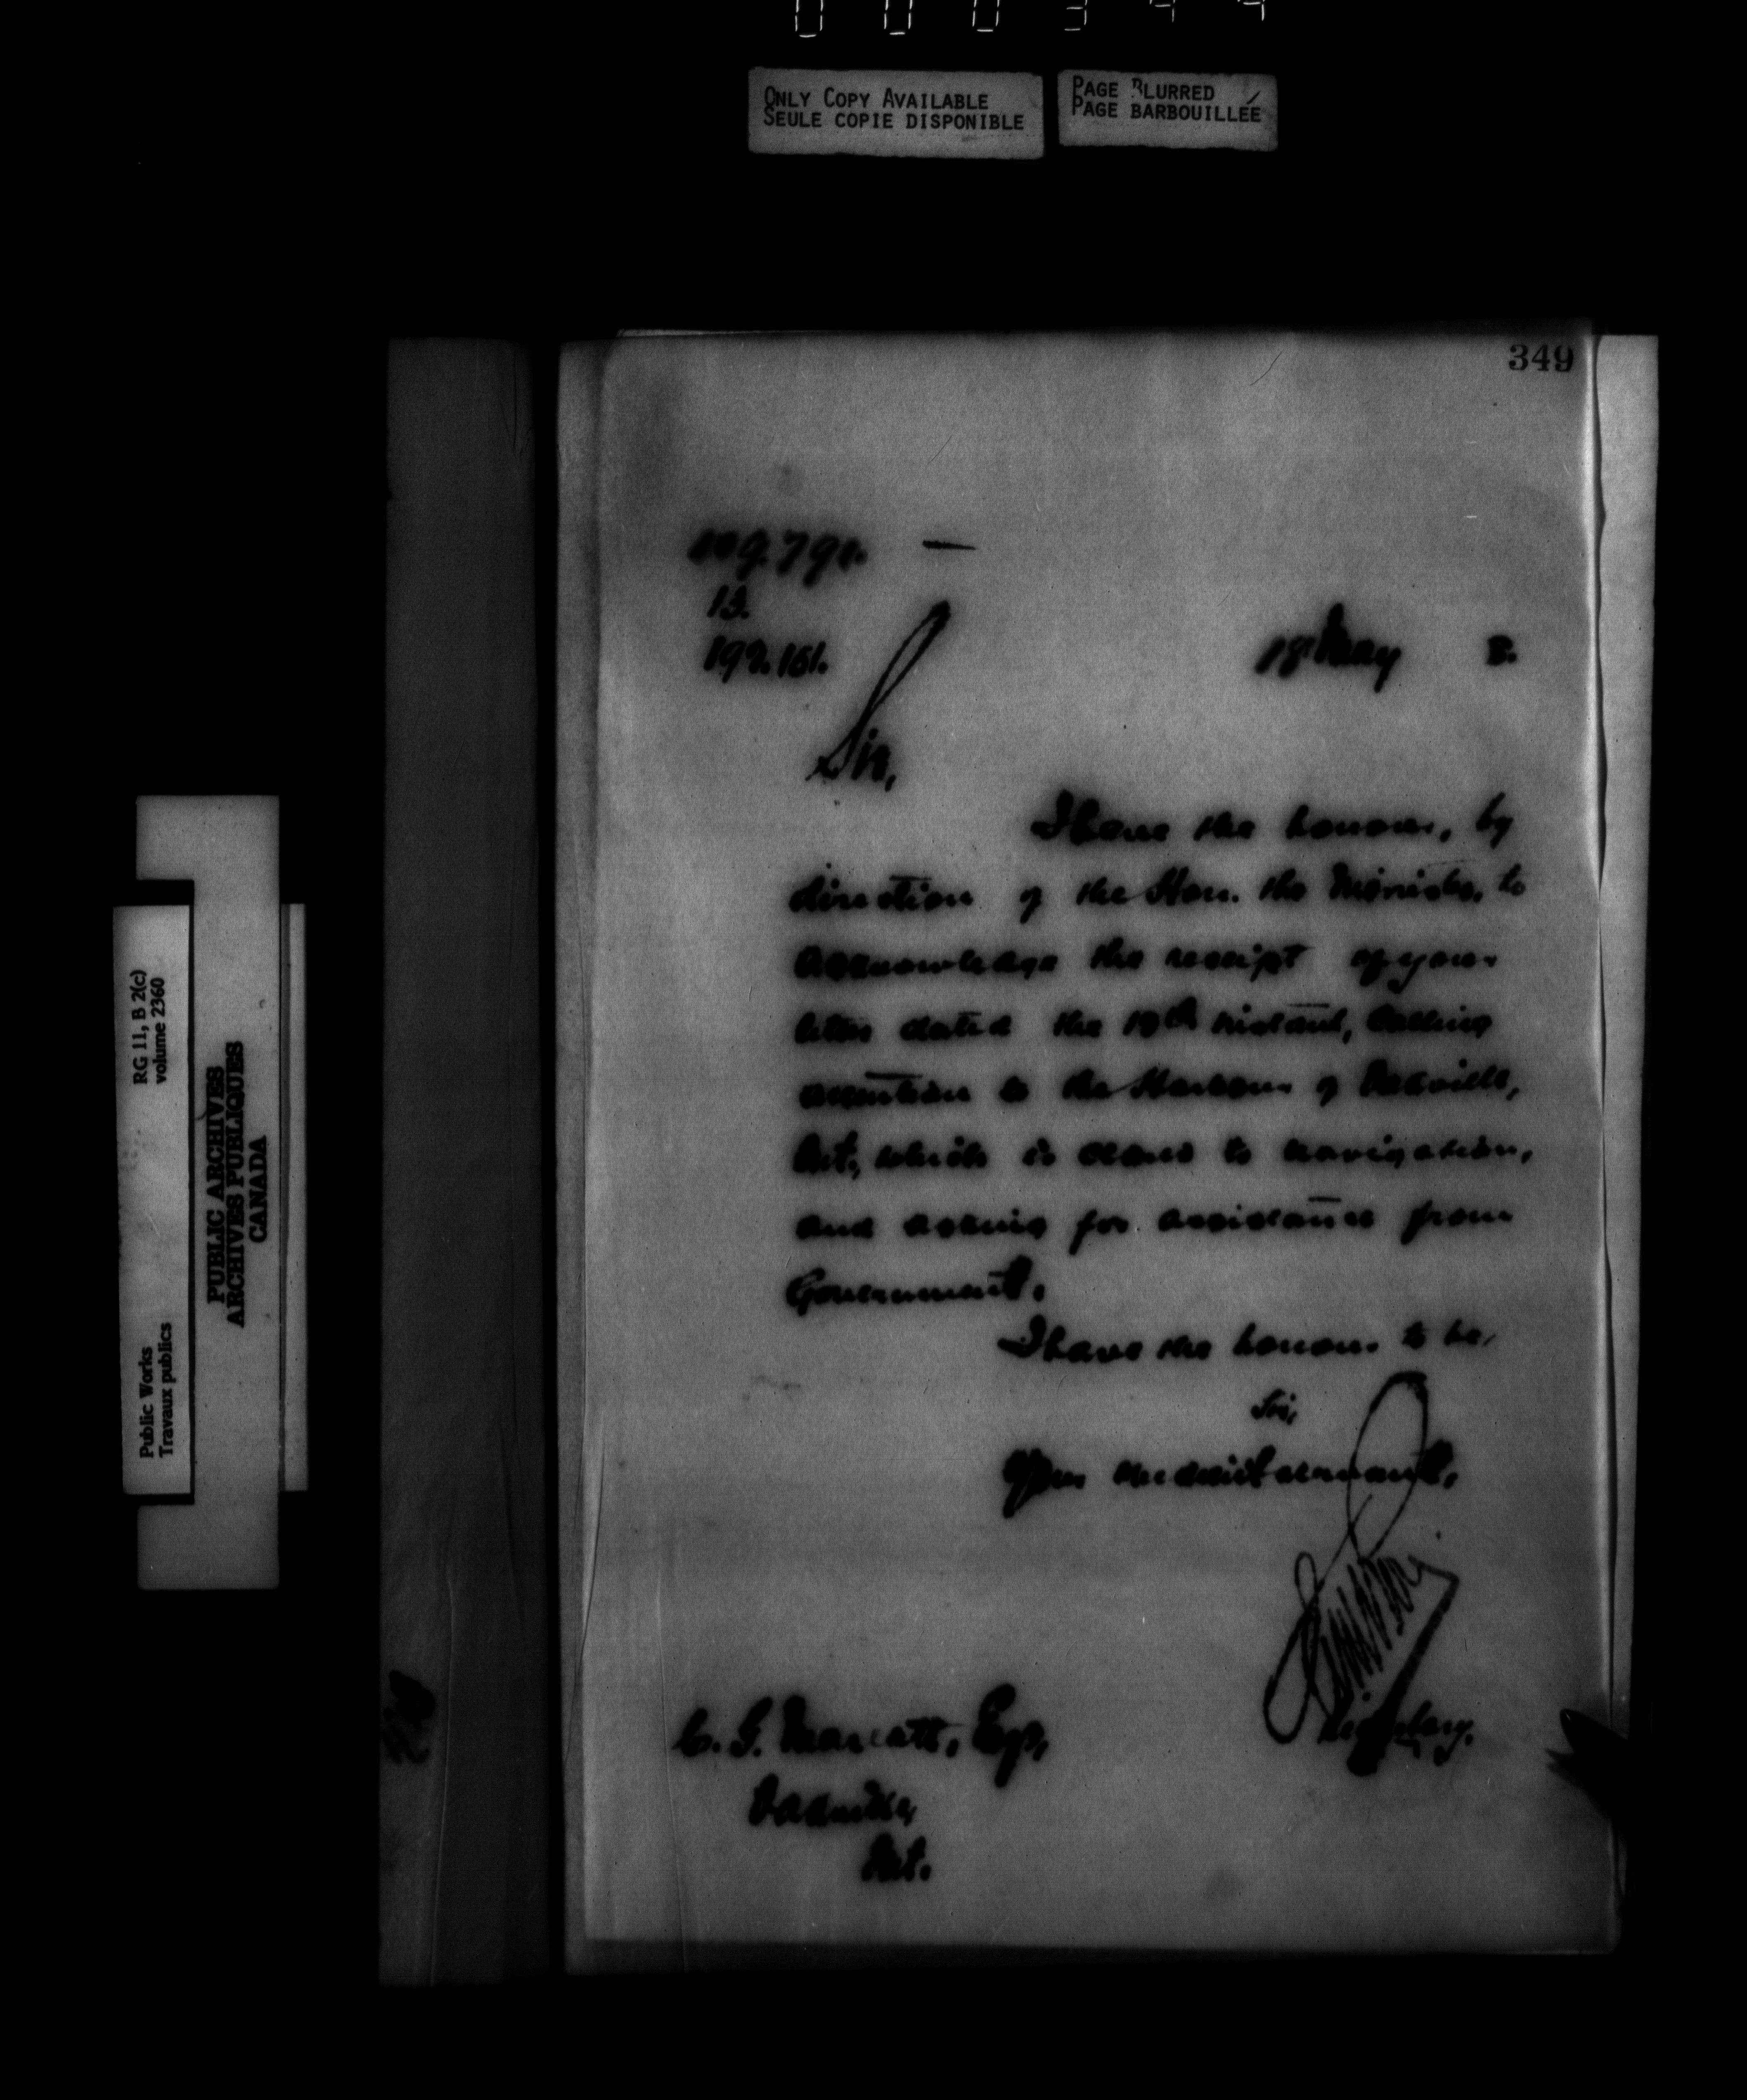 000349
ONLY COPY AVAILABLE
SEULE COPIE DISPONIBLE
PAGE BLURRED
PAGE BARBOUILLÉE
349
13.
192.161.
18 May 3.
Sir,
I have the honour, by
direction of the Hon. the Minister, to
acknowledge the receipt of your
letter dated the instant, calling
attention to the Harbour of Oakville,
Ont., which is closed to navigation,
and asking for assistance from
Government.
I have the honour to be,
Sir,
Your obedient servant,
Secretary.
C. G. Marlatt, Esq,
Oakville,
Ont.
RG 11, B 2(c)
volume 2360
Public Works
Travaux publics
PUBLIC ARCHIVES
ARCHIVES PUBLIQUES
CANADA